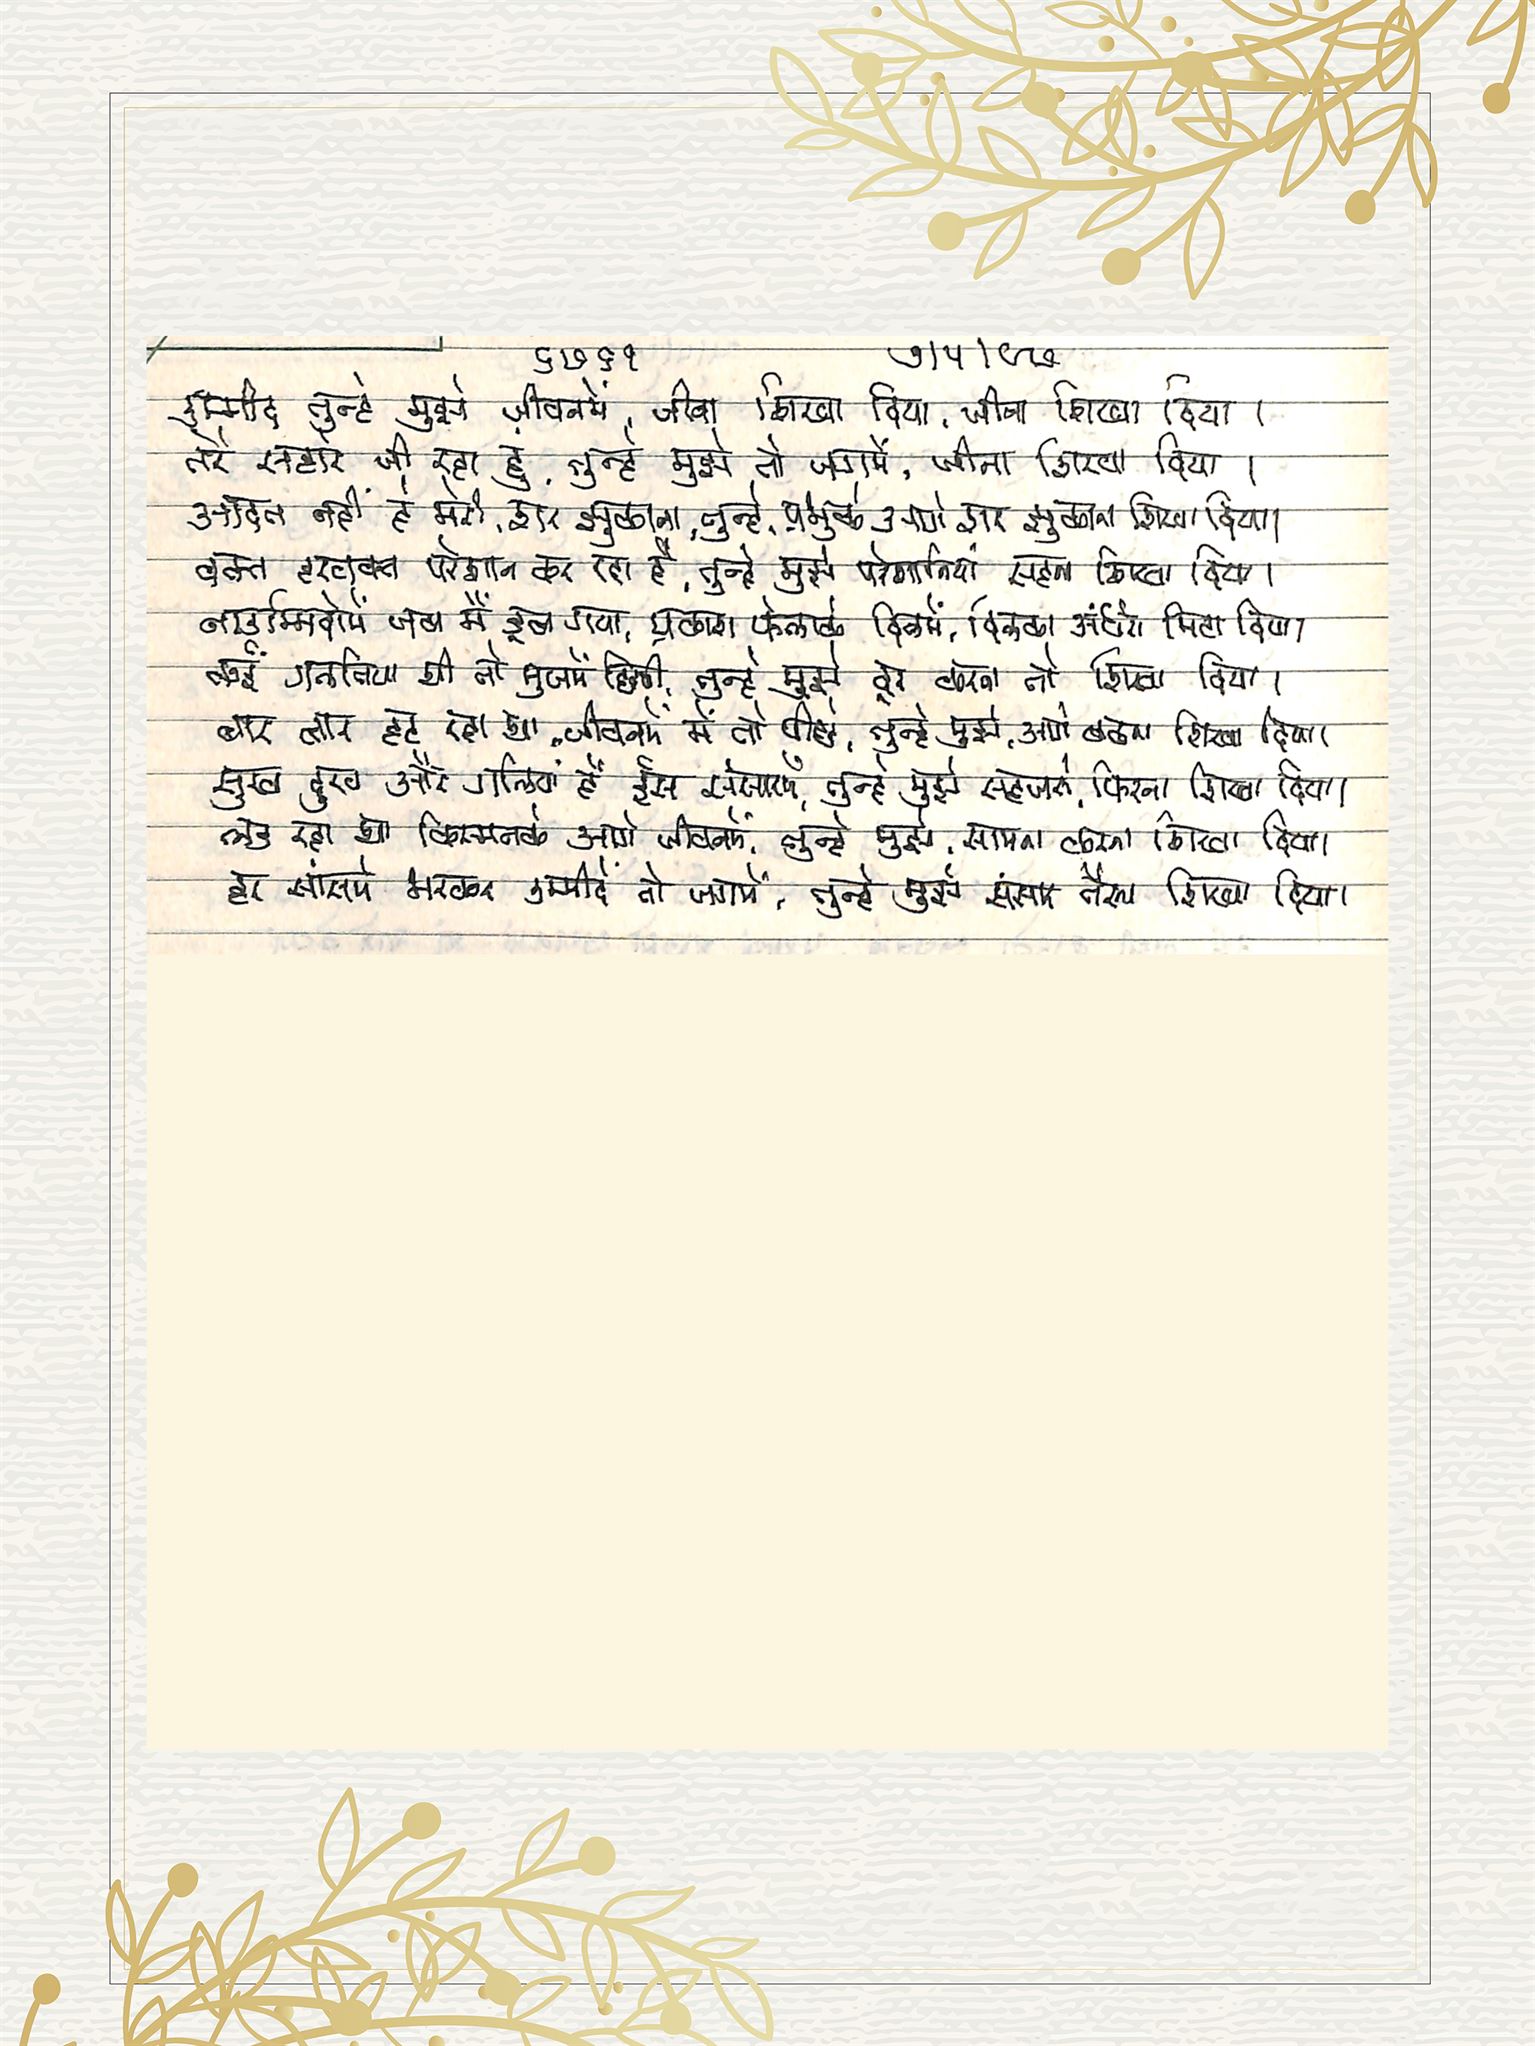 ६७६१ ७।५।८७
उम्मीद तुन्हे मुझे जीवनमें, जीना शिखा दिया, जीना शिखा दिया ।
तेरे सहारे जी रहा हुं, तुन्हे मुझे तो जगमें, जीना शिखा दिया ।
आदत नहीं हे मेरी, शर झुकाना, तुन्हे, प्रभुके आगे शर झुकाना शिखा दिया।
वक्त हरवक्त परेशान कर रहा है, तुन्हे मुझे परेशानियां सहना शिखा दिया ।
नाउम्मिदोमें जब मैं डूब गया, प्रकाश फेलाके दिलमें, दिलका अंधेरा मिटा दिया।
कई गलतिया थी तो मुजमें, तुन्हे मुझे दूर करना तो शिखा दिया ।
बार बार हट रहा था, जीवनमें में तो पीछे, तुन्हे मुझे, आगे बढना शिखा दिया।
सुख दुख और गलियां हैं ईस संसारमें, तुन्हे मुझे सहजसे, फिरना शिखा दिया।
लड रहा था किस्मतके आगे जीवनमें, तुन्हे मुझे, सामना करना शिखा दिया।
हर सांसमे भरकर उम्मीदें तो जगमें, तुन्हे मुझे संसार तैरना शिखा दिया।